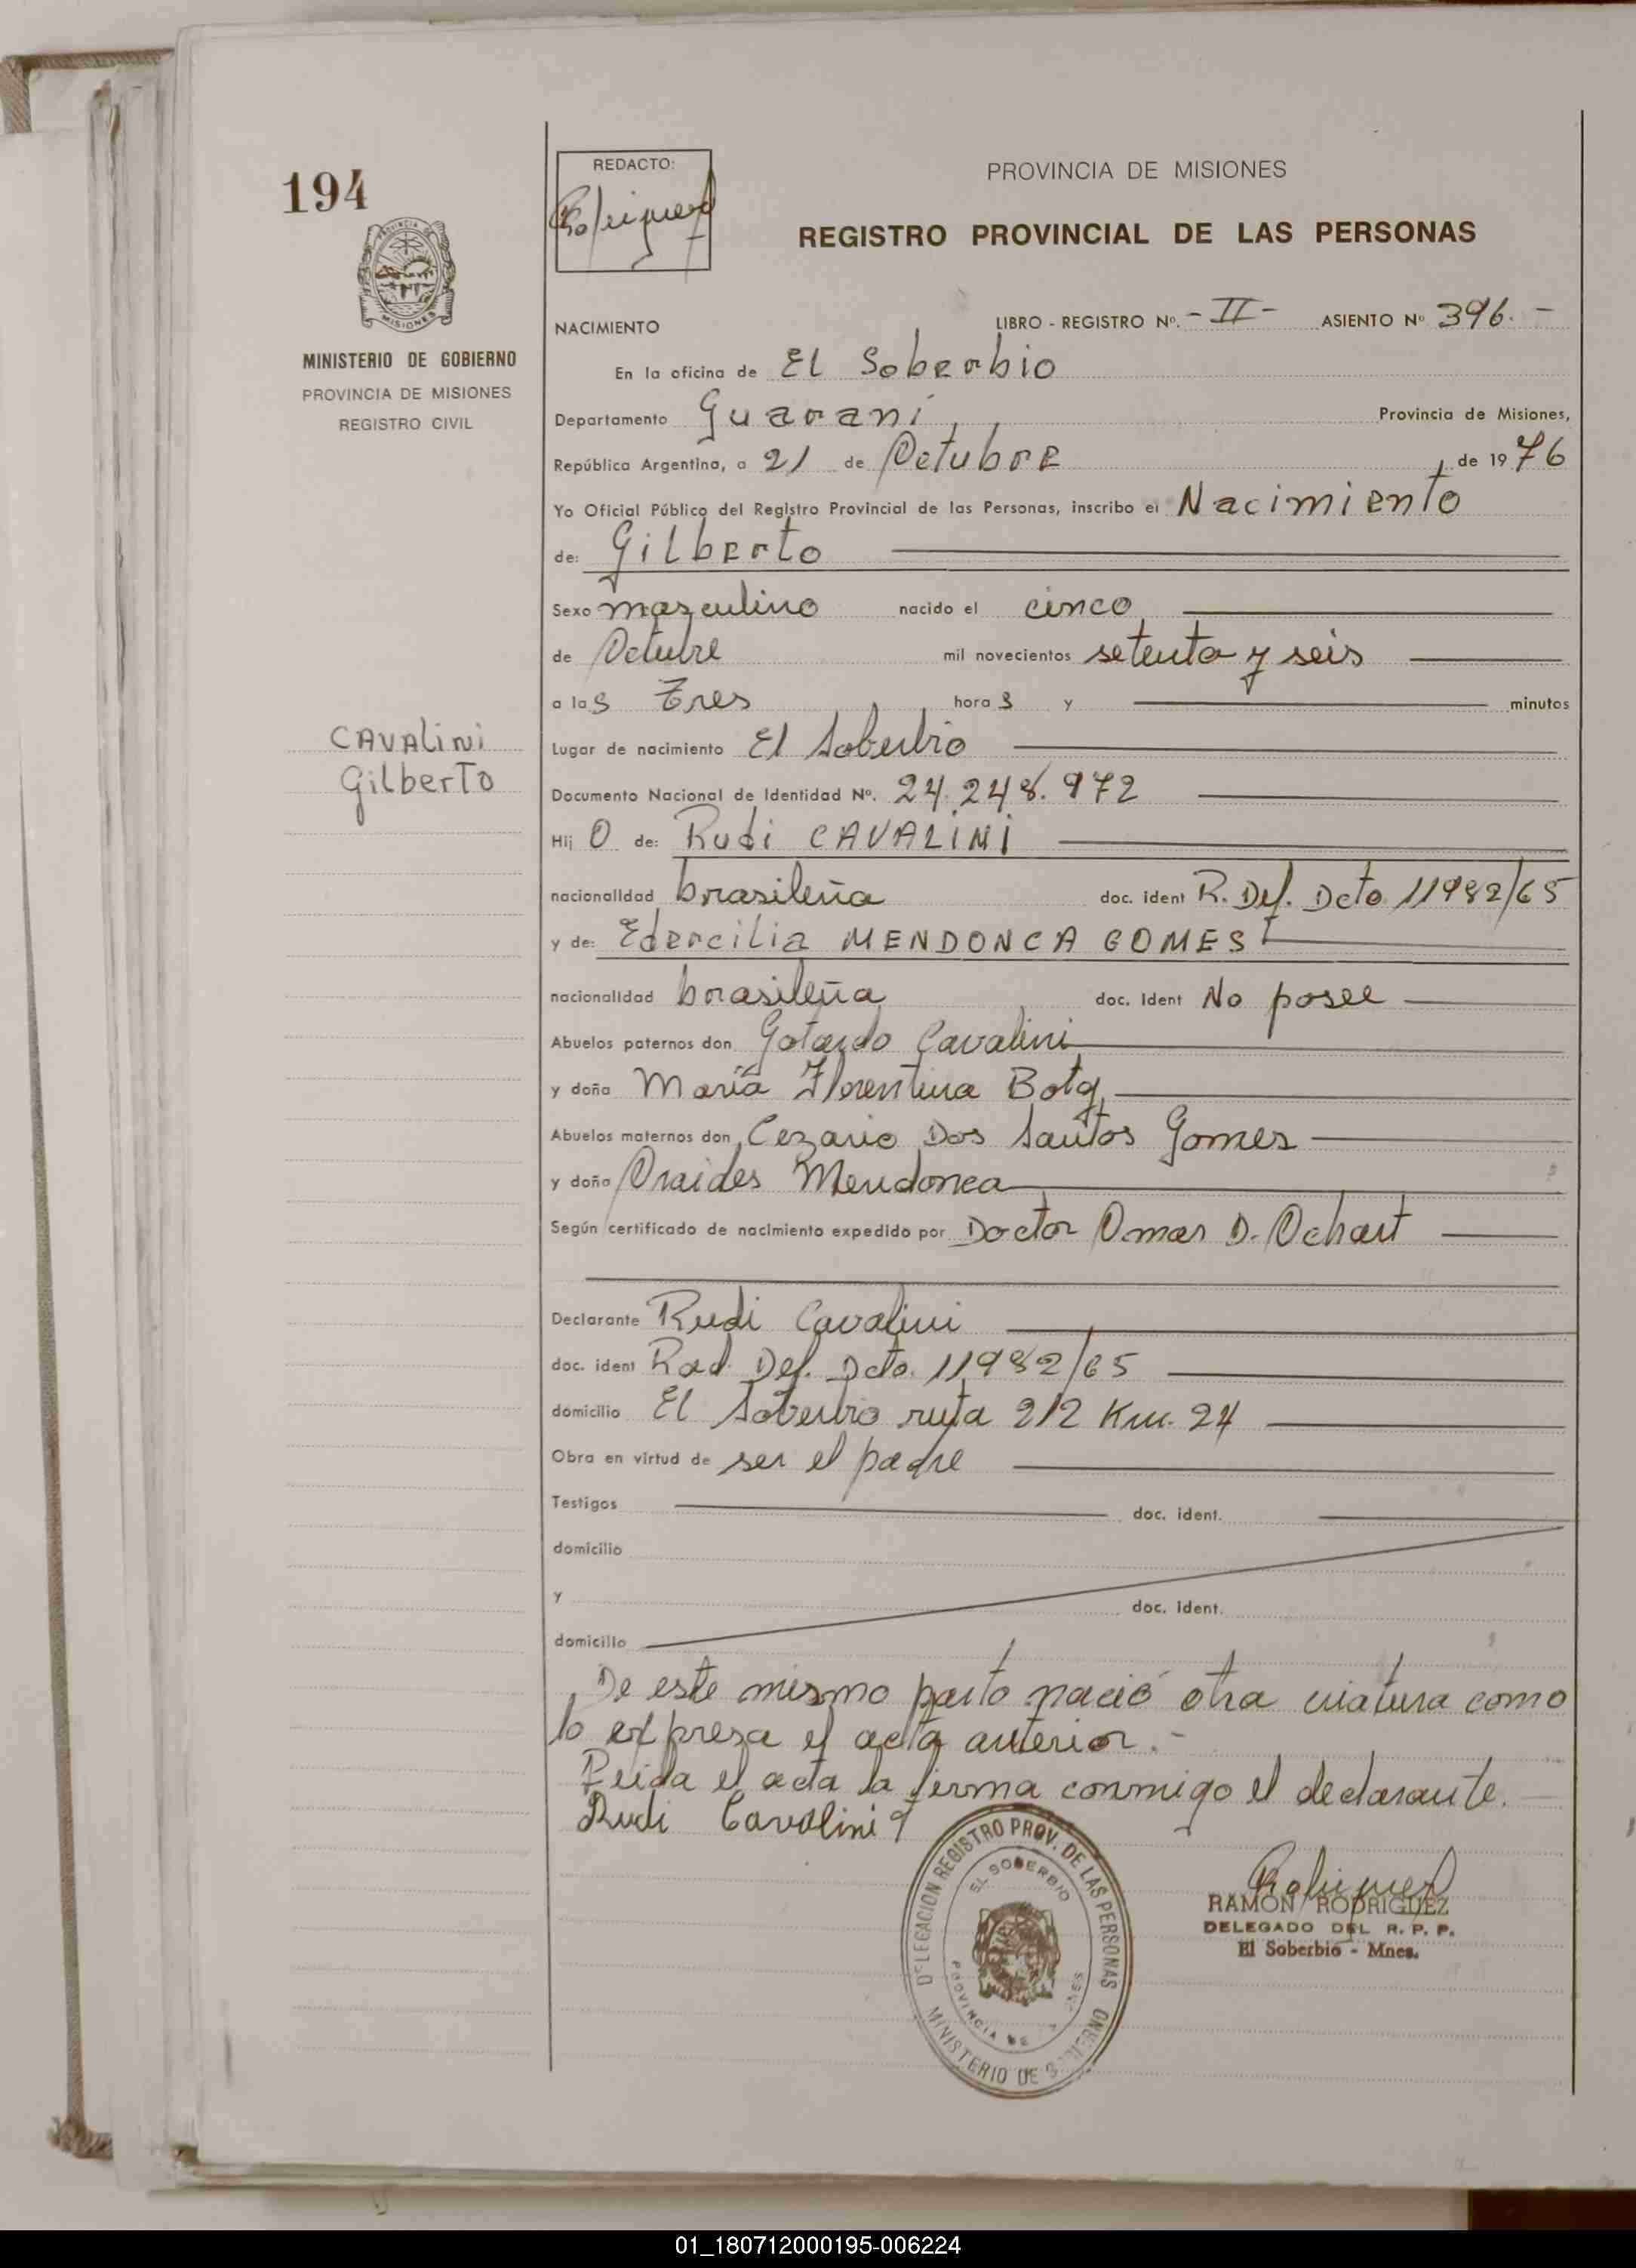 194
REDACTO:
PROVINCIA DE MISIONES
REGISTRO PROVINCIAL DE LAS PERSONAS
MISIONES
MINISTERIO DE GOBIERNO
PROVINCIA DE MISIONES
REGISTRO CIVIL
NACIMIENTO LIBRO - REGISTRO Nº. - II - ASIENTO Nº 396. -
En la oficina de El Soberbio
Departamento Guaraní Provincia de Misiones,
República Argentina, a 21 de Octubre de 1976
Yo Oficial Público del Registro Provincial de las Personas, inscribo el Nacimiento
de: Gilberto
Sexo masculino nacido el cinco
de Octubre mil novecientos setenta y seis
a las Tres horas y minutos
CAVALINI
Gilberto
Lugar de nacimiento El Soberbio
Documento Nacional de Identidad Nº. 24.248.972
Hij O de: Rudi CAVALINI
nacionalidad brasileña doc. ident R. Def. Dcto 11982/65
y de: Edercilia MENDONCA GOMES
nacionalidad brasileña doc. ident No posee
Abuelos paternos don Gotardo Cavalini
y doña María Florentina
Abuelos maternos don Cezario Dos Santos Gomes
y doña Oraides Mendonca
Según certificado de nacimiento expedido por Doctor Omar D. Ochart
Declarante Rudi Cavalini
doc. ident Rad. Def. Dcto. 11982/65
domicilio El Soberbio ruta 212 Km. 24
Obra en virtud de ser el padre
Testigos doc. ident.
domicilio
y doc. ident.
domicilio
De este mismo parto nació otra criatura como
lo expresa el acta anterior.-
Leida el acta la firma conmigo el declarante.
Rudi Cavalini
DELEGACION REGISTRO PROV. DE LAS PERSONAS
EL SOBERBIO
PROVINCIA DE
MINISTERIO DE GOBIERNO
RAMON RODRIGUEZ
DELEGADO DEL R. P. P.
El Soberbio - Mnes.
01_180712000195-006224